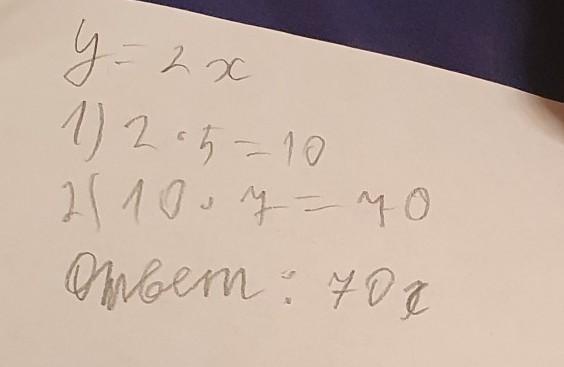 y = 2x
1) 2 · 5 = 10
2) 10 · 7 = 70
Ответ: 70